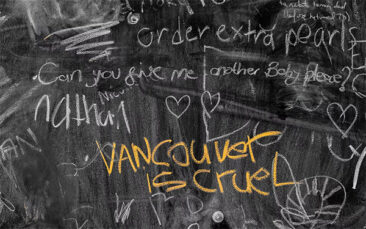 order extra pearls
Can you give me another Baby please?
nathan
VANCOUVER
is CRUEL